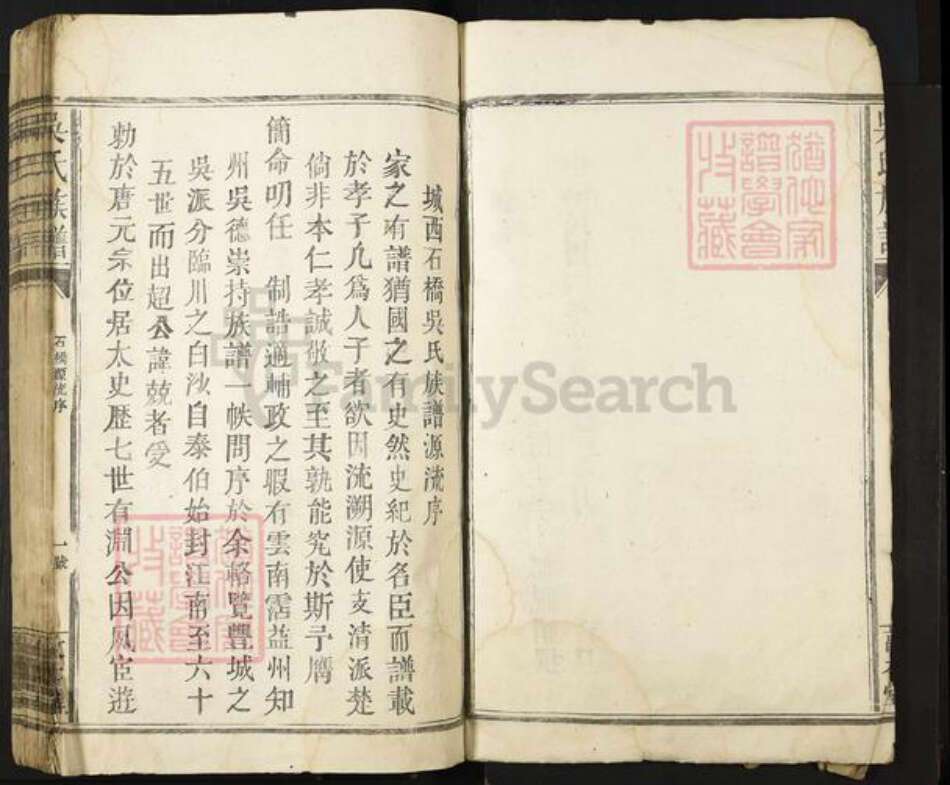 城西石橋吳氏族譜源流序
家之有譜猶國之有史然史紀於名臣而譜載
於孝子凡為人子者欲因流溯源使支清派楚
倘非本仁孝誠敬之至其孰能究於斯予膺
簡命叨任　制誥適輔政之暇有雲南霑益州知
州吳德崇持族譜一帙問序於余輅覽豐城之
吳派分臨川之白沙自泰伯始封江南至六十
五世而出超公諱兢者受
勅於唐元宗位居太史歷七世有淵公因夙宦遊
吳氏族譜
一號
吳氏族譜
譜學會
收藏
FamilySearch